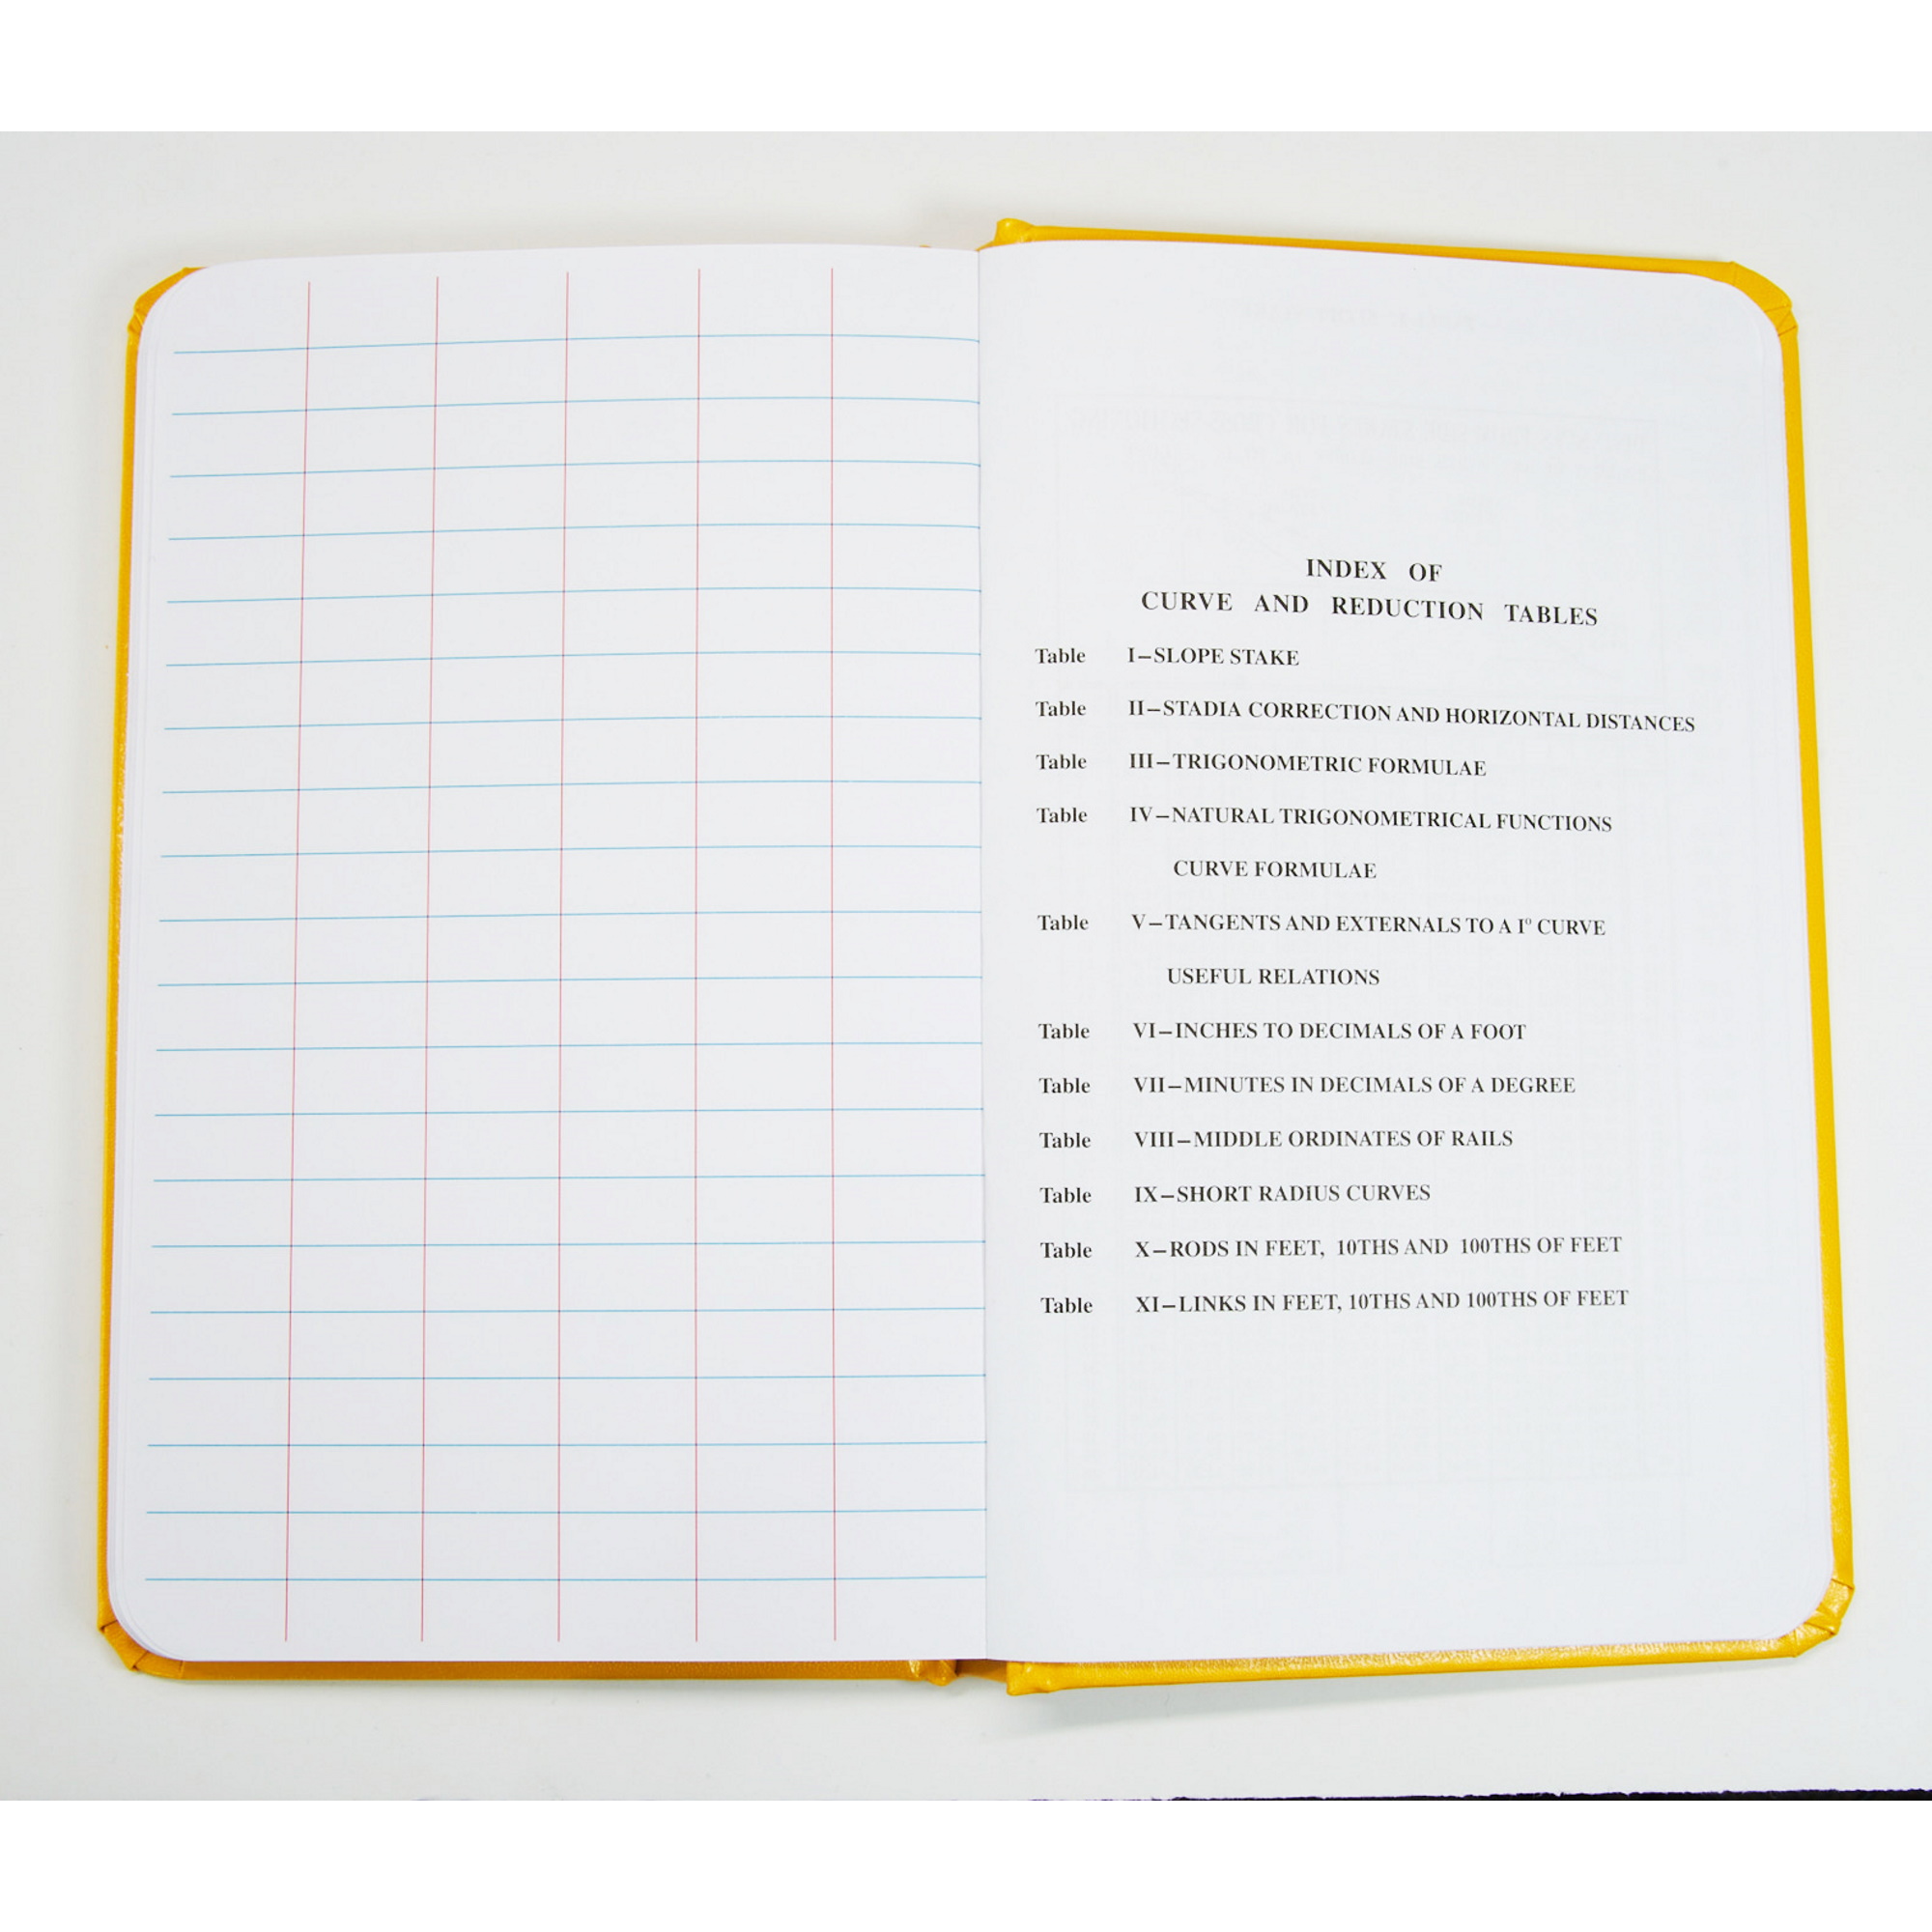 INDEX OF
CURVE AND REDUCTION TABLES
Table I–SLOPE STAKE
Table II–STADIA CORRECTION AND HORIZONTAL DISTANCES
Table III–TRIGONOMETRIC FORMULAE
Table IV–NATURAL TRIGONOMETRICAL FUNCTIONS
CURVE FORMULAE
Table V–TANGENTS AND EXTERNALS TO A I° CURVE
USEFUL RELATIONS
Table VI–INCHES TO DECIMALS OF A FOOT
Table VII–MINUTES IN DECIMALS OF A DEGREE
Table VIII–MIDDLE ORDINATES OF RAILS
Table IX–SHORT RADIUS CURVES
Table X–RODS IN FEET, 10THS AND 100THS OF FEET
Table XI–LINKS IN FEET, 10THS AND 100THS OF FEET